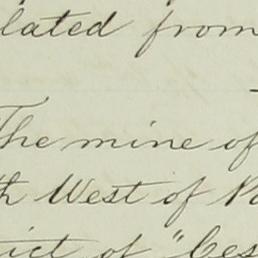 lated from
The mine of
th West of
ict of "